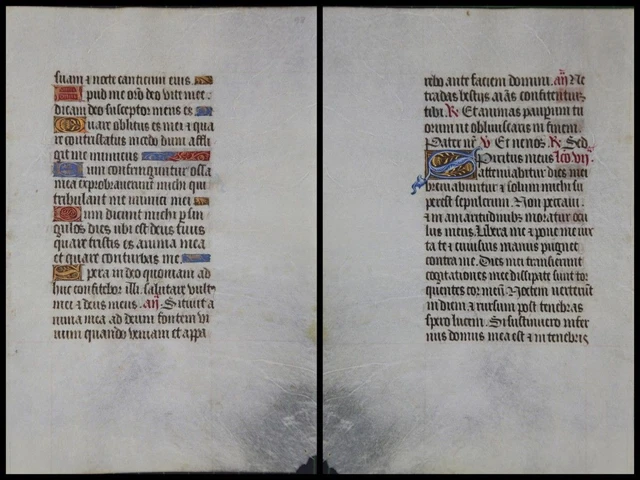 suam ⁊ nocte canticum eius
pud me oro deo vite mee.
dicam deo susceptor meus es
uare oblitus es mei ⁊ qua
re contristatus incedo dum affli
git me inimicus
um confringuntur ossa
mea exprobraverunt michi qui
tribulant me inimici mei
um dicunt michi p sin
gulos dies ubi est deus tuus
quare tristis es anima mea
et quare conturbas me.
Spera in deo quoniam ad
huc confitebor illi. salutare vult9
mei ⁊ deus meus. añ. Sitivit a
nima mea ad deum fontem vi
vum quando veniam et appa
rebo ante faciem domini. añ Ne
tradas bestijs aīas confitentiũ
tibi. R Et animas pauperum tu
orum ne obliviscaris in finem.
Pater nr̄ V Et ne nos. R Sed
Spiritus meus lco vij
attenuabitur dies mei
breviabuntur ⁊ solum michi su
perest sepulcrum. Non peccavi.
⁊ in amaritudinibs moratur ocu
lus meus. Libera me ⁊ pone me iux
ta te ⁊ cuiusvis manus pugnet
contra me. Dies mei transierunt
cogitationes mee dissipate sunt tor
quentes cor meū. Noctem verterunt
in diem ⁊ rursum post tenebras
spero lucem. Si sustinuero infer
nus domus mea est ⁊ in tenebris